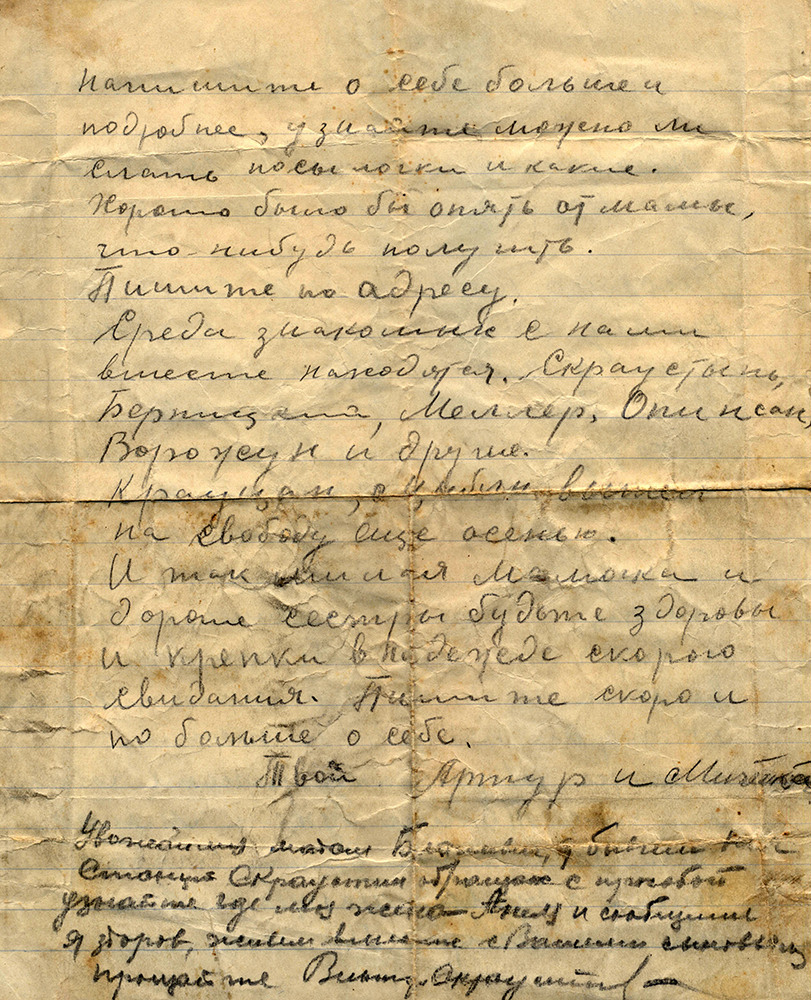 напишите о себе больше и
подробнее, узнайте можно ли
слать посылочки и какие.
Хорошо было бы опять от мамы,
что-нибудь получить.
Пишите по адресу.
Среди знакомых с нами
вместе находятся. Скраустынь,
Меллер, Опинсон,
Ворожун и другие.
вышли
на свободу еще осенью.
И так милая Мамочка и
дорогие сестры будьте здоровы
и крепки в надежде скорого
свидания. Пишите скоро и
по больше о себе.
Твой Артур и
Уважаемая мадам я бывший
Скраустин обращаюс с прозбой
узнайте где моя жена и сообщите
я здоров, живем вместе с Вашими сыновьями
прощайте